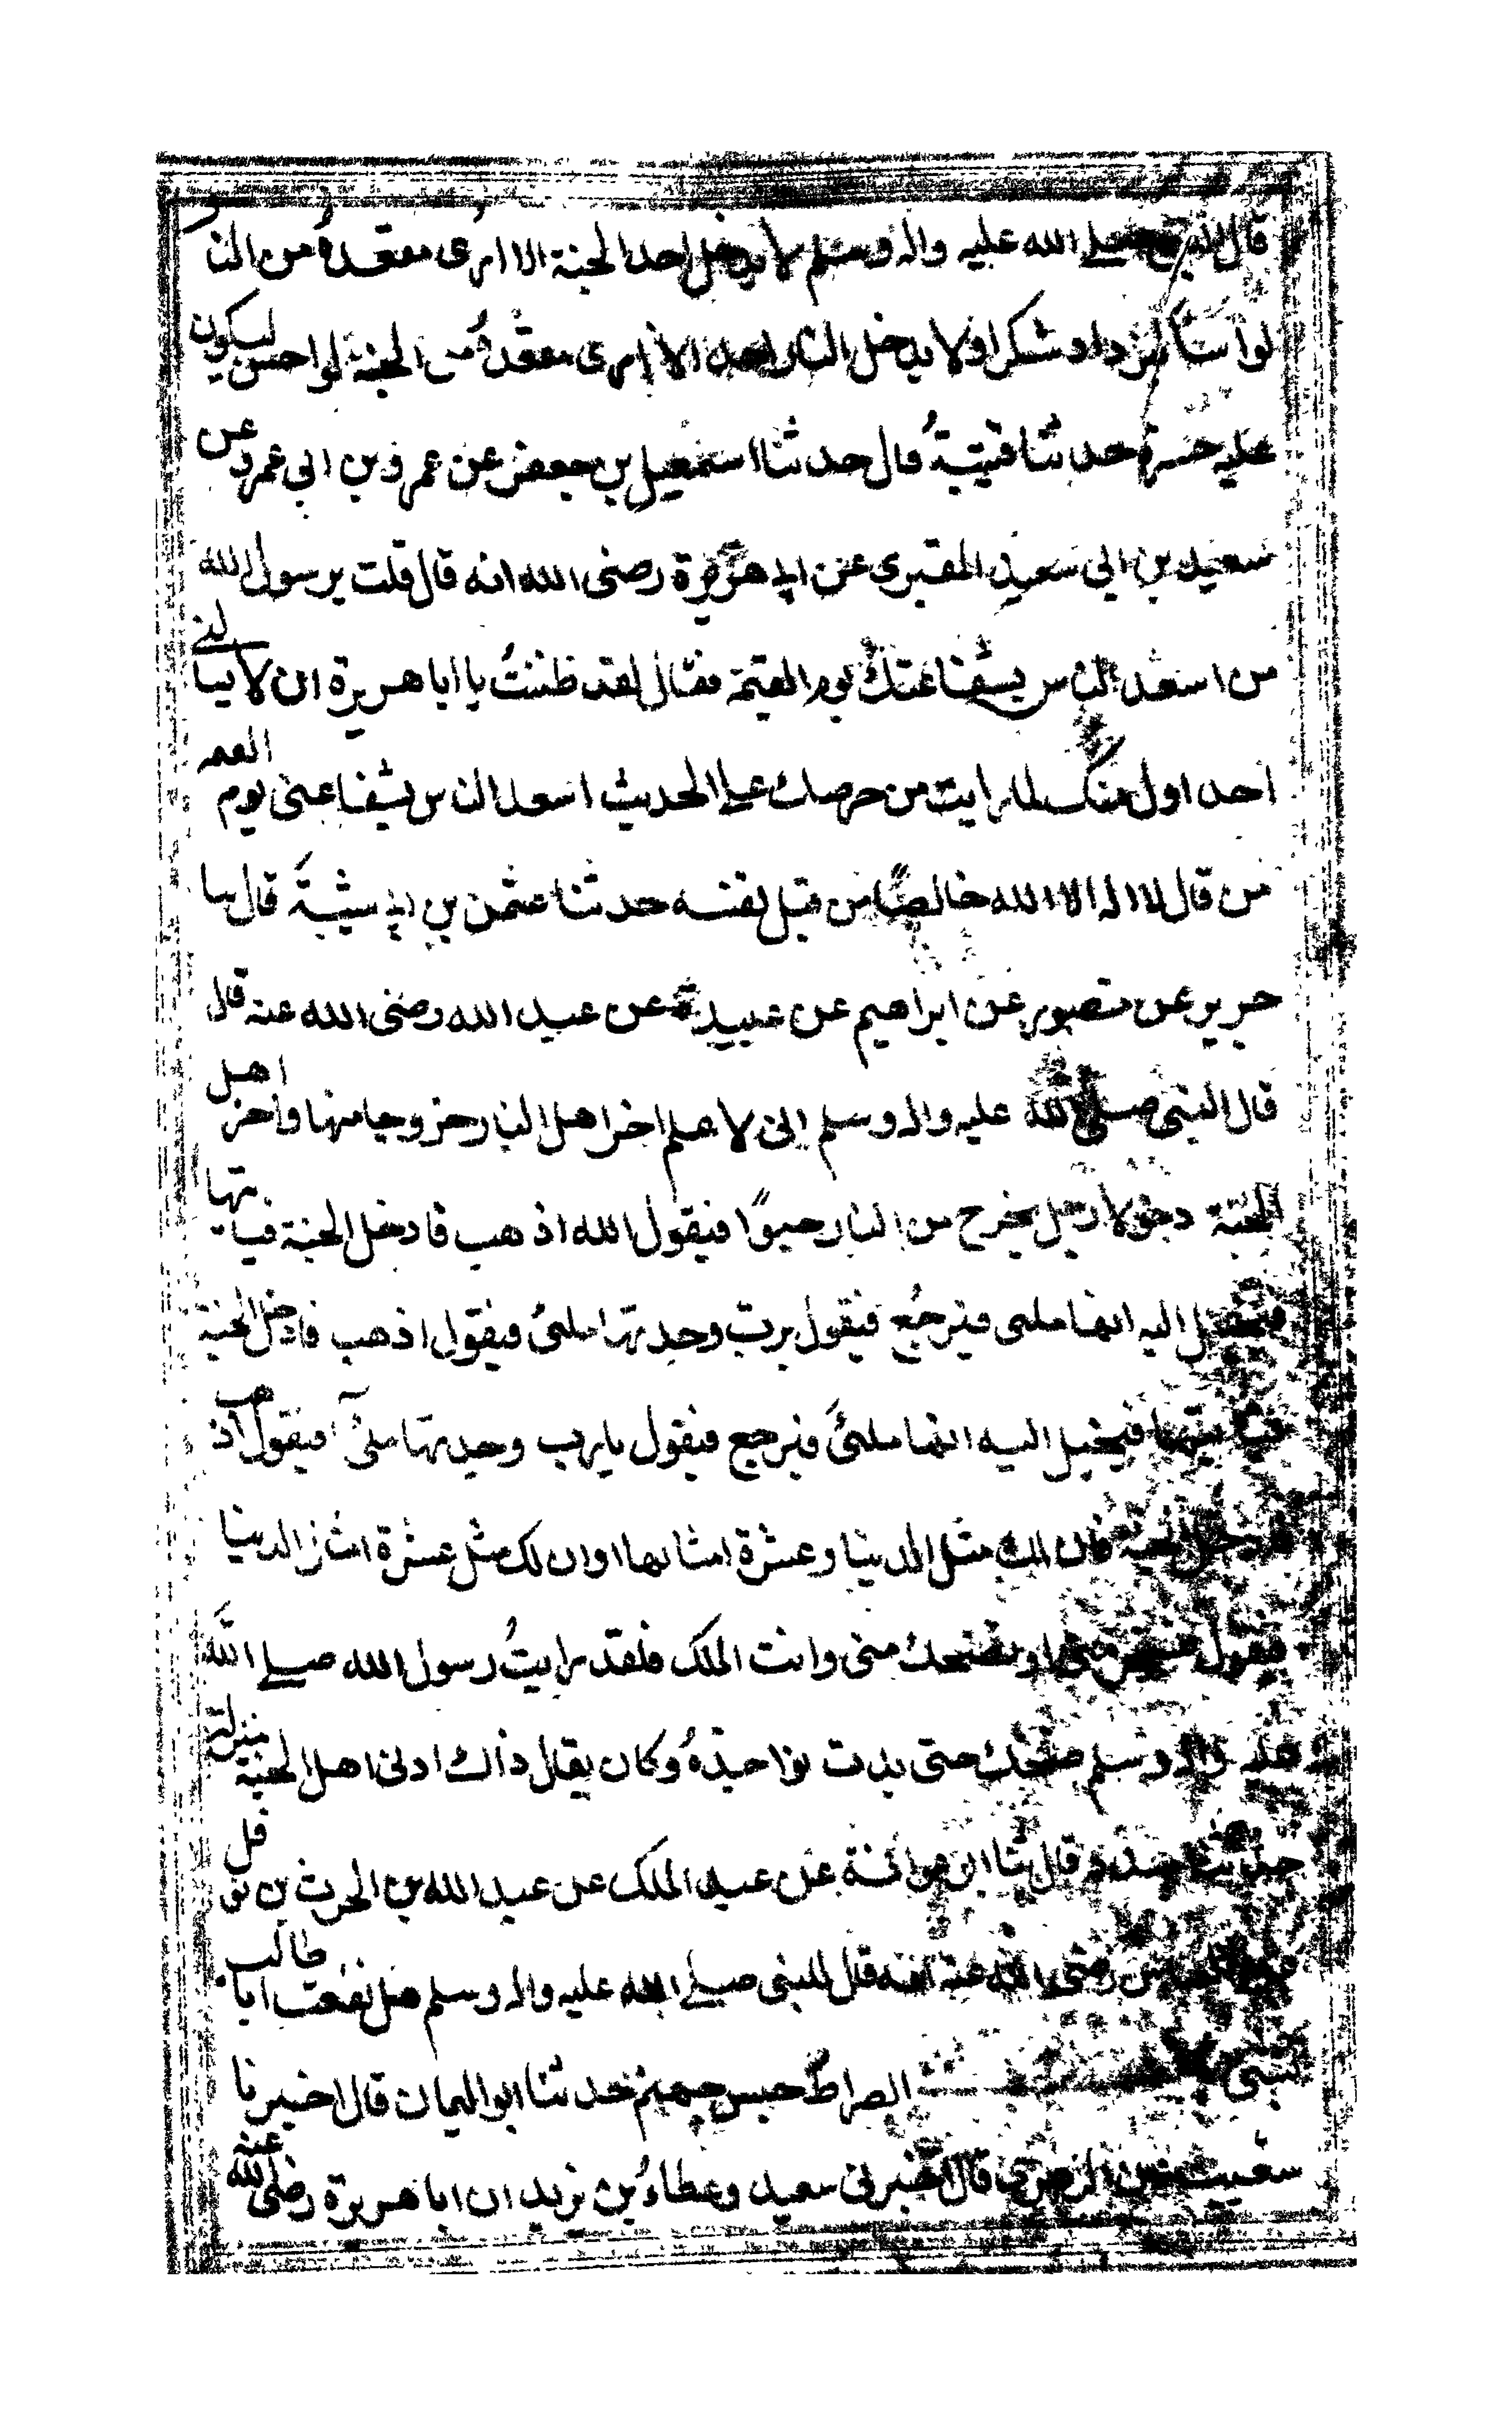 قال النبي صلى الله عليه واله وسلم لا يدخل احد الجنة الا ارى مقعده من النار
لو أسأ ليزداد شكرا ولا يدخل النار احد الا ارى مقعده من الجنة لو احسن ليكون
عليه حسرة حدثنا قتيبة قال حدثنا اسمعيل بن جعفر عن عمرو بن ابي عمرو عن
سعيد بن ابي سعيد المقبري عن ابي هريرة رضى الله انه قال قلت يرسول الله
من اسعد الناس بشفاعتك يوم القيمة فقال لقد ظننت يا ابا هريرة ان لا يسألني
احد اول منك لما رايت من حرصك على الحديث اسعد الناس بشفاعتى يوم القيمه
من قال لا اله الا الله خالصًا من قبل نفسه حدثنا عثمن بن ابي شيبة قال ثنا
جرير عن منصور عن ابراهيم عن عبيدة عن عبد الله رضى الله عنه قال
قال النبى صلى الله عليه واله وسلم انى لا علم اخر اهل النار خروجا منها واخر اهل
الجنة دخولا رجل يخرج من النار حبوًا فيقول الله اذهب فادخل الجنة فياتيها
فيخيل اليه انها ملئى فيرجع فيقول يرب وجدتها ملئى فيقول اذهب فادخل الجنة
فياتيها فيخيل اليه انها ملئى فيرجع فيقول يارب وجدتها ملئى فيقول اذهب
فادخل الجنة فان لك مثل الدنيا وعشرة امثالها اوان لك مثل عشرة امثال الدنيا
فيقول تسخر منى او تضحك منى وانت الملك فلقد رايت رسول الله صلى الله
عليه واله وسلم ضحك حتى بدت نواجذه وكان يقال ذاك ادنى اهل الجنة منزلة
حدثنا مسدد قال ثنا ابو عوانة عن عبد الملك عن عبد الله بن الحرث بن نوفل
عن العباس رضى الله عنه انه قال للنبى صلى الله عليه واله وسلم هل نفعت ابا طالب
بشى الصراط جسر جهنم حدثنا ابو اليمان قال اخبرنا
شعيب عن الزهرى قال اخبرنى سعيد وعطاء بن يزيد ان ابا هريرة رضى الله عنه